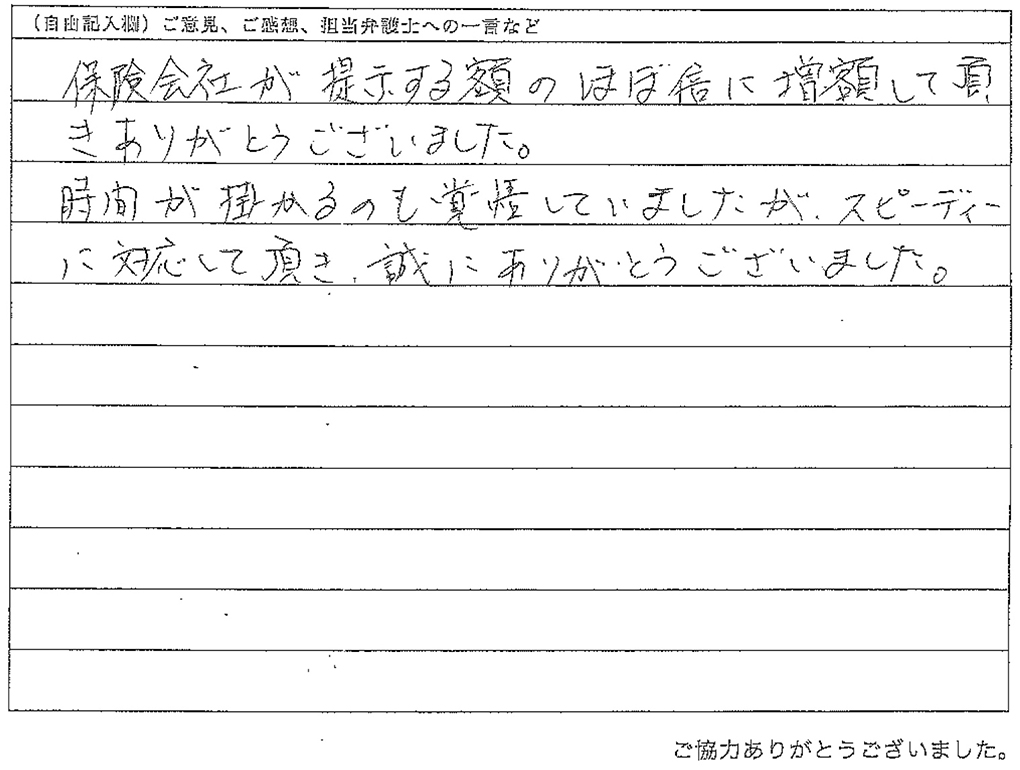 （自由記入欄）ご意見、ご感想、担当弁護士への一言など
保険会社が提示する額のほぼ倍に増額して頂
きありがとうございました。
時間が掛かるのも覚悟していましたが、スピーディー
に対応して頂き、誠にありがとうございました。
ご協力ありがとうございました。